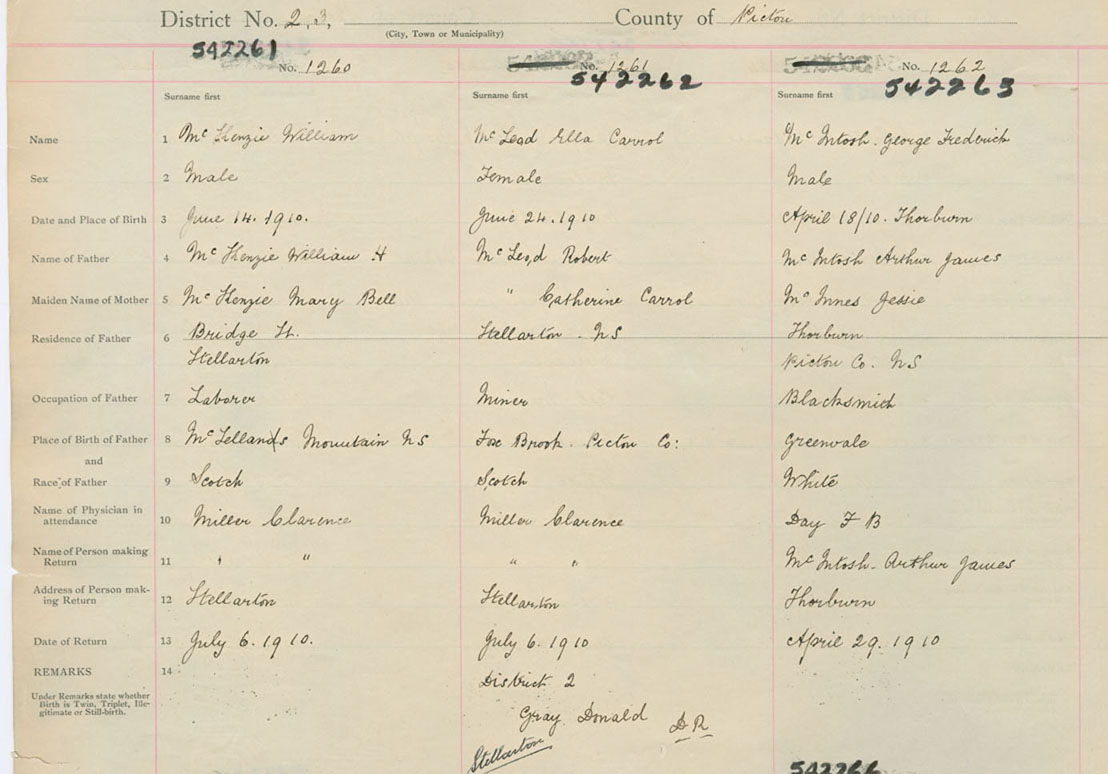 District No. 2, 3, County of Pictou
(City, Town or Municipality)
542261
No. 1260 No. 1261 No. 1262
542262 542263
Surname first Surname first Surname first
Name 1 Mc Kenzie William Mc Leod Ella Carrol Mc Intosh. George Frederick
Sex 2 Male Female Male
Date and Place of Birth 3 June 14. 1910. June 24. 1910 April 18/10. Thorburn
Name of Father 4 Mc Kenzie William H Mc Leod Robert Mc Intosh Arthur James
Maiden Name of Mother 5 Mc Kenzie Mary Bell " Catherine Carrol Mc Innes Jessie
Residence of Father 6 Bridge St. Stellarton. NS Thorburn
Stellarton Pictou Co. NS
Occupation of Father 7 Laborer Miner Blacksmith
Place of Birth of Father 8 McLellands Mountain NS Fox Brook. Pictou Co: Greenvale
and
Race of Father 9 Scotch Scotch White
Name of Physician in
attendance 10 Miller Clarence Miller Clarence Day F B
Name of Person making
Return 11 " " " " Mc Intosh. Arthur James
Address of Person mak-
ing Return 12 Stellarton Stellarton Thorburn
Date of Return 13 July 6. 1910. July 6. 1910 April 29. 1910
REMARKS 14 District 2
Under Remarks state whether
Birth is Twin, Triplet, Ille-
gitimate or Still-birth.
Gray Donald DR
Stellarton
542266